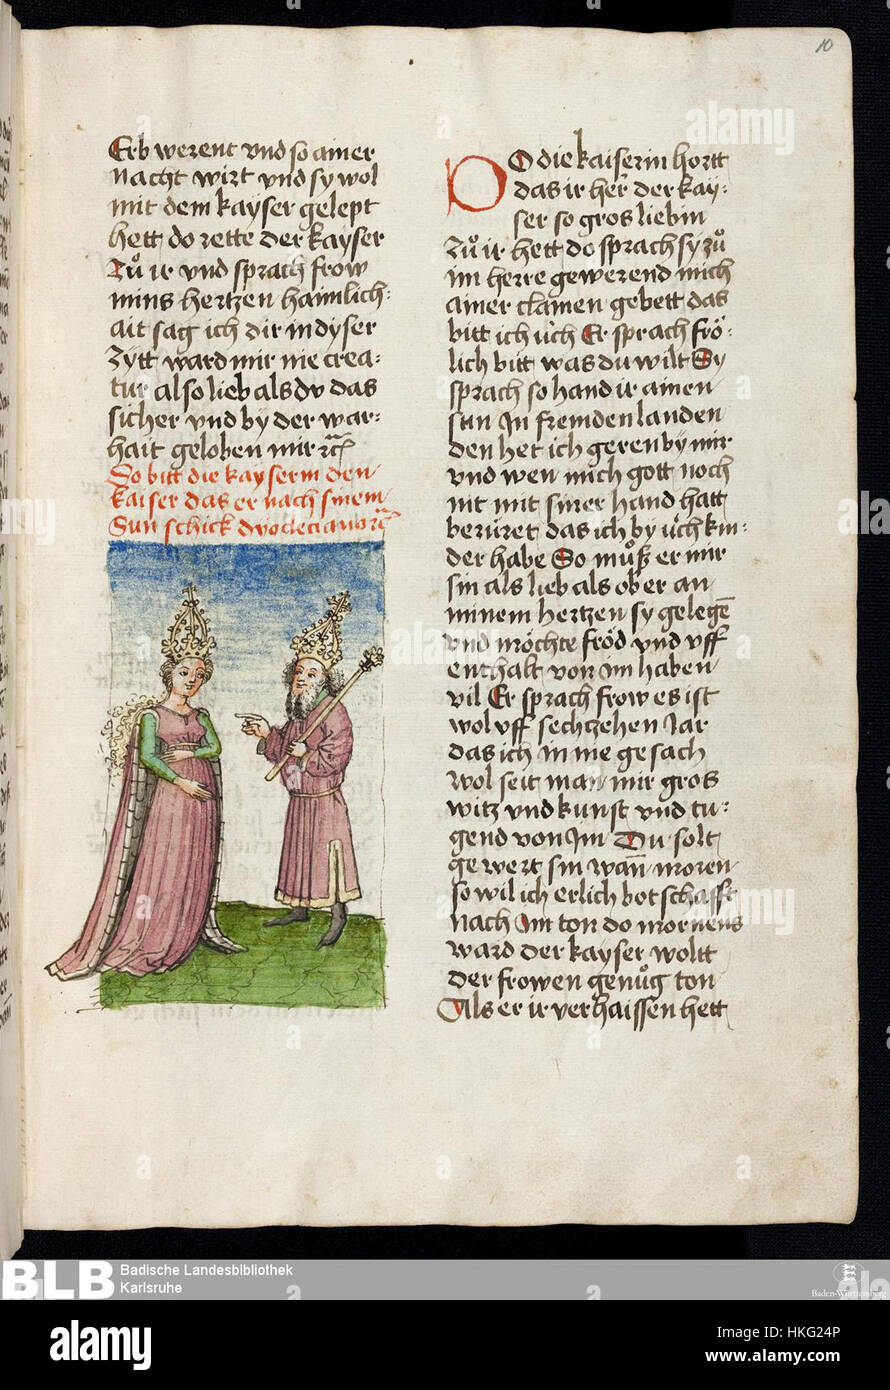 10
Erb werent vnd so ainer
nacht wirt vnd sy wol
mit dem kayser gelept
hett do rette der kayser
Zů ir vnd sprach frow
mins hertzen haimlich-
ait sag ich dir in dyser
Zytt ward mir nie crea-
tur also lieb als dv das
sicher vnd by der war-
hait geloben mir
So bitt die kayserin den
kaiser das er nach sinem
Sun schick dyocleciano
DO die kaiserin hortt
das ir her der kay-
ser so gros liebin
Zů ir hett do sprach sy zů
im herre gewerend mich
ainer clainen gebett das
bitt ich üch Er sprach frö-
lich bitt was du wilt Sy
sprach so hand ir ainen
sun In fremden landen
den het ich geren by mir
vnd wen mich gott noch
nit mit siner hand hatt
berüret das ich by üch kin-
der habe So můß er mir
sin als lieb als ob er an
minem hertzen sy gelegē
vnd möchte fröd vnd vff
enthalt von im haben
vil Er sprach frow es ist
wol vff sechzehen Jar
das ich in nie gesach
wol seit man mir gros
witz vnd kunst vnd tu-
gend von Im Du solt
gewert sin wañ moren
so wil ich erlich botschafft
nach Im ton do mornens
ward der kayser woltt
der frowen genůg ton
Als er ir verhaissen hett
BLB Badische Landesbibliothek
Karlsruhe
Baden-Württemberg
alamy
Image ID: HKG24P
www.alamy.com